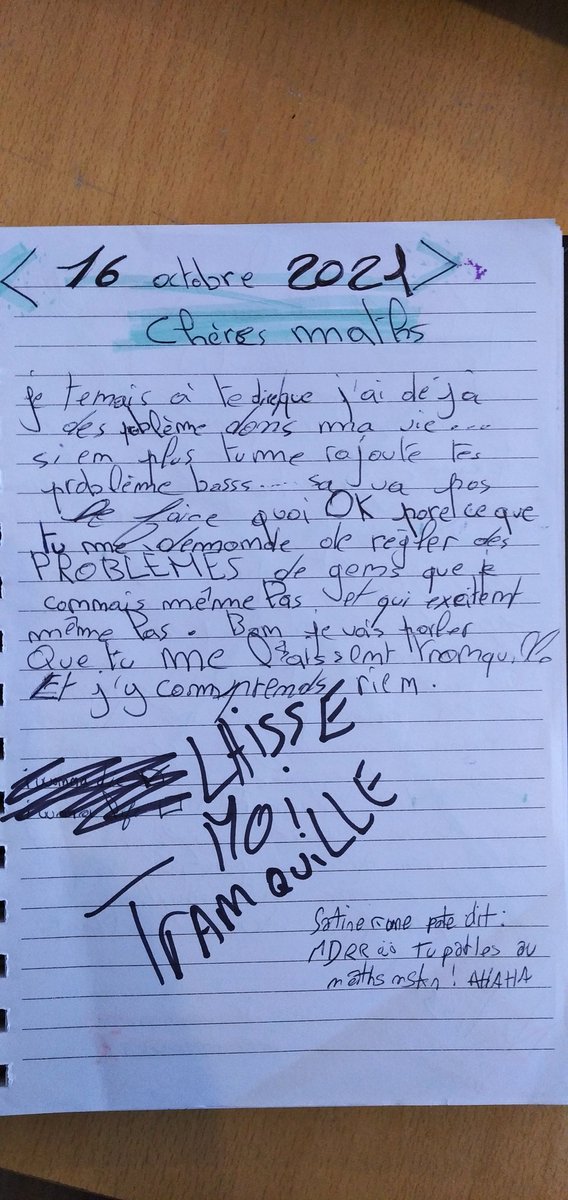 < 16 octobre 2021 >
Chères maths
je temais à te dire que j'ai déjà
des poblème dans ma vie....
si en plus tu me rajoute tes
problème basss.... sa va pas
le faire quoi OK parce ce que
tu me demande de regler des
PROBLÈMES de gens que je
connais même Pas, et qui exitent
même Pas. Bon je vais parler
Que tu me laissent tranquille
Et j'y comprends riem.
LAISSE
MOI
TRANQUILLE
Satine rone pote dit:
MDRR tu parles au
maths mskn! AHAHA